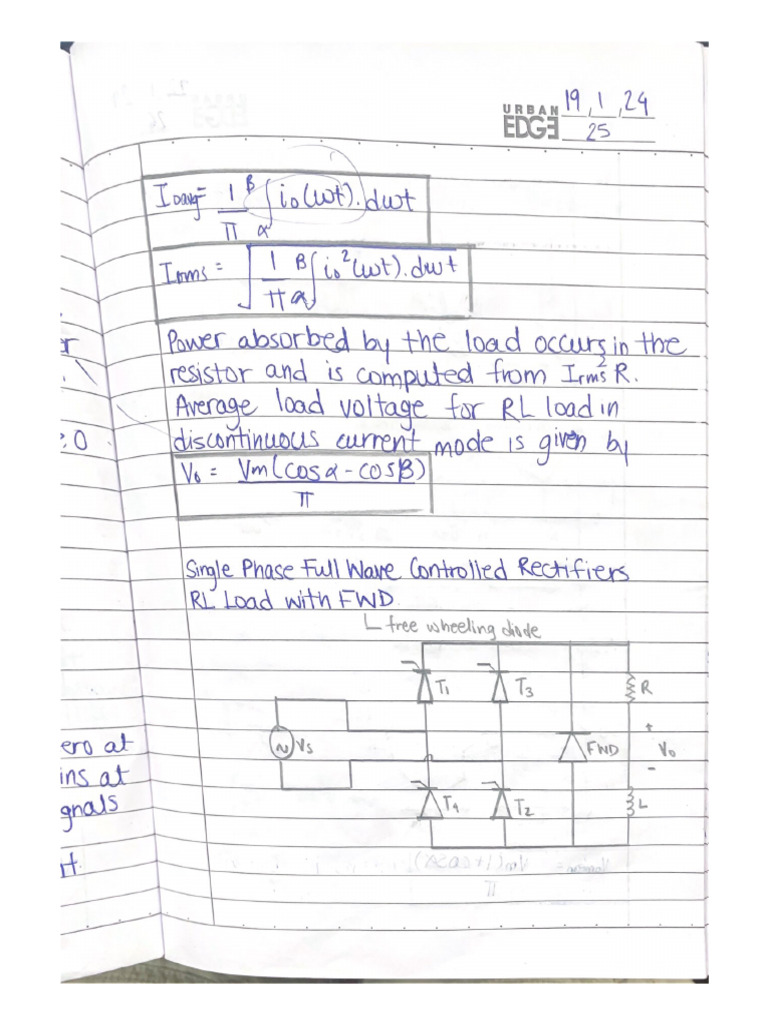 URBAN
EDGE
19, 1, 24
25
Ioavg = 1/π ∫ α β io(ωt).dωt
Irms = √ 1/π ∫ α β io²(ωt).dωt
Power absorbed by the load occurs in the
resistor and is computed from Irms²R.
Average load voltage for RL load in
discontinuous current mode is given by
Vo = Vm(cosα-cosβ)
π
Single Phase Full Wave Controlled Rectifiers
RL Load with FWD
free wheeling diode
T1
T3
R
Vs
FWD
+
Vo
-
T4
T2
L
:0
ero at
ins at
gnals